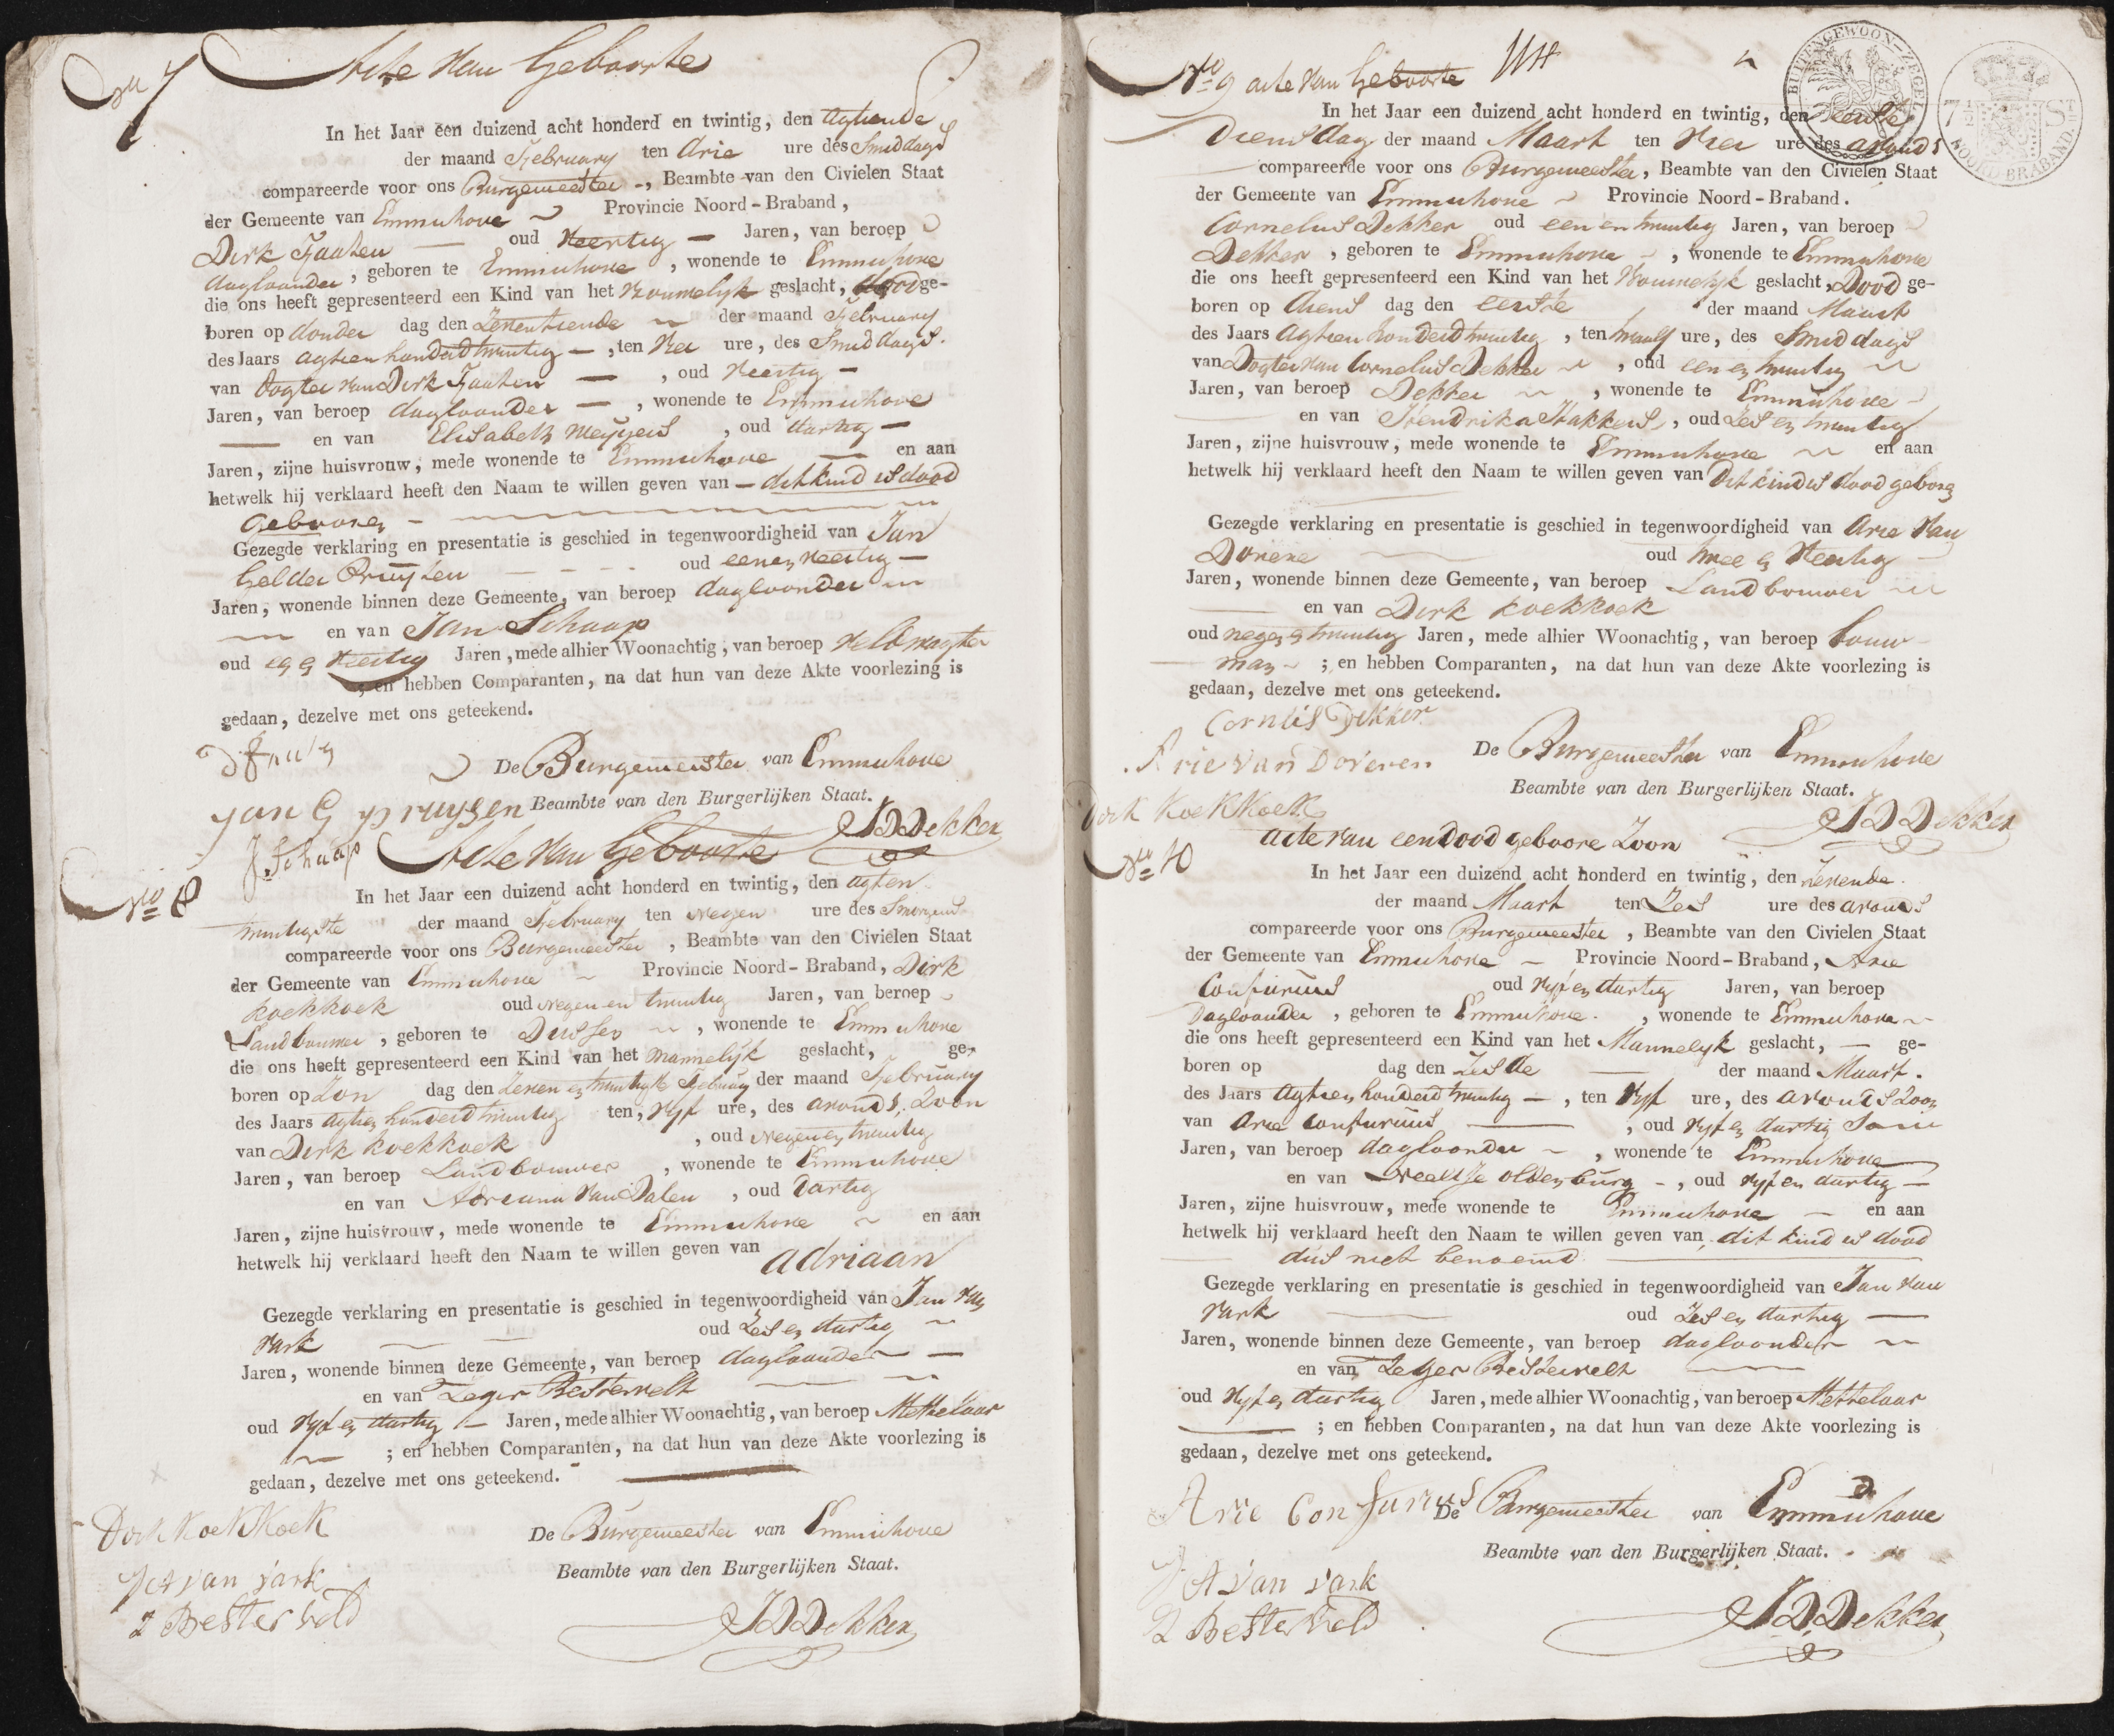 No 7 Acte van Geboorte
In het Jaar een duizend acht honderd en twintig, den agtiende
der maand February ten drie ure des Smiddags
compareerde voor ons Burgemeester, Beambte van den Civielen Staat
der Gemeente van Emmichove Provincie Noord-Braband,
Dirk oud Veertig Jaren, van beroep
dagloonder, geboren te Emmichove, wonende te Emmichove
die ons heeft gepresenteerd een Kind van het Vrouwelyk geslacht, dood ge-
boren op donder dag den Zeventiende der maand February
des Jaars agtien honderd twintig —, ten vier ure, des Smiddags.
van dogter van Dirk —, oud Veertig —
Jaren, van beroep dagloonder —, wonende te Emmichove
— en van Elisabeth Meyyers, oud dartig —
Jaren, zijne huisvrouw, mede wonende te Emmichove — en aan
hetwelk hij verklaard heeft den Naam te willen geven van — dit kind is dood
gebooren —
Gezegde verklaring en presentatie is geschied in tegenwoordigheid van Jan
Gelder Pruysen oud een en veertig —
Jaren, wonende binnen deze Gemeente, van beroep dagloonder
en van Jan Schaap
oud en Veertig Jaren, mede alhier Woonachtig, van beroep Veldwagter
; en hebben Comparanten, na dat hun van deze Akte voorlezing is
gedaan, dezelve met ons geteekend.
De Burgemeester van Emmichove
Jan G pruysen Beambte van den Burgerlijken Staat.
J Schaap JDDekker
No 8 Acte van Geboorte
In het Jaar een duizend acht honderd en twintig, den agt en
twintigste der maand February ten Negen ure des Smorgens
compareerde voor ons Burgemeester, Beambte van den Civielen Staat
der Gemeente van Emmichove Provincie Noord-Braband, Dirk
koekkoek oud Negen en twintig Jaren, van beroep
Landbouwer, geboren te Dussen, wonende te Emmichove
die ons heeft gepresenteerd een Kind van het Mannelyk geslacht, ge-
boren op Zon dag den Zeven en twintigste February der maand February
des Jaars agtien honderd twintig ten, vyf ure, des avonds, Zoon
van Dirk koekkoek, oud Negen en twintig
Jaren, van beroep Landbouwer, wonende te Emmichove
en van Adriana van Dalen, oud dartig
Jaren, zijne huisvrouw, mede wonende te Emmichove en aan
hetwelk hij verklaard heeft den Naam te willen geven van adriaan
Gezegde verklaring en presentatie is geschied in tegenwoordigheid van Jan van
vark oud Zes en dartig
Jaren, wonende binnen deze Gemeente, van beroep dagloonder —
en van Zeger Bestervelt
oud vyf en dartig — Jaren, mede alhier Woonachtig, van beroep Metselaar
; en hebben Comparanten, na dat hun van deze Akte voorlezing is
gedaan, dezelve met ons geteekend.
Dirk KoekKoek De Burgemeester van Emmichove
van vark Beambte van den Burgerlijken Staat.
Z Besterveld JDDekker
BUITENGEWOON-ZEGEL
7½ ST
NOORD BRABAND
No 9 acte van Geboorte
In het Jaar een duizend acht honderd en twintig, den eerste
Diensdag der maand Maart ten vier ure des avonds
compareerde voor ons Burgemeester, Beambte van den Civielen Staat
der Gemeente van Emmichove Provincie Noord-Braband.
Cornelus Dekker oud een en twintig Jaren, van beroep
Dekker, geboren te Emmichove, wonende te Emmichove
die ons heeft gepresenteerd een Kind van het Vrouwelyk geslacht, Dood ge-
boren op diens dag den eerste der maand Maart
des Jaars agtien honderd twintig, ten twaalf ure, des Smiddags
van Dogter van Cornelus Dekker, oud een en twintig
Jaren, van beroep Dekker, wonende te Emmichove
en van Hendrika Hakkers, oud Zes en twintig
Jaren, zijne huisvrouw, mede wonende te Emmichove en aan
hetwelk hij verklaard heeft den Naam te willen geven van Dit kind is dood geboren
Gezegde verklaring en presentatie is geschied in tegenwoordigheid van Arie van
Doveren oud twee en Veertig
Jaren, wonende binnen deze Gemeente, van beroep Landbouwer
en van Dirk koekkoek
oud negen en twintig Jaren, mede alhier Woonachtig, van beroep bouw
man; en hebben Comparanten, na dat hun van deze Akte voorlezing is
gedaan, dezelve met ons geteekend.
Cornelis Dekker
Arie van Doveren De Burgemeester van Emmichove
Beambte van den Burgerlijken Staat.
Dirk KoekKoek JDDekker
No 10 acte van een dood geboore Zoon
In het Jaar een duizend acht honderd en twintig, den Zevende
der maand Maart ten Zes ure des avonds
compareerde voor ons Burgemeester, Beambte van den Civielen Staat
der Gemeente van Emmichove — Provincie Noord-Braband, Arie
Confurius oud vyf en dartig Jaren, van beroep
Dagloonder, geboren te Emmichove, wonende te Emmichove
die ons heeft gepresenteerd een Kind van het Mannelyk geslacht, — ge-
boren op dag den Zesde der maand Maart.
des Jaars agtien honderd twintig —, ten vyf ure, des avonds Zoon
van Arie Confurius —, oud vyf en dartig
Jaren, van beroep dagloonder, wonende te Emmichove
en van Neeltje oldenburg —, oud vyf en dartig —
Jaren, zijne huisvrouw, mede wonende te Emmichove — en aan
hetwelk hij verklaard heeft den Naam te willen geven van dit kind is dood
dus niet benoemd
Gezegde verklaring en presentatie is geschied in tegenwoordigheid van Jan van
vark oud Zes en dartig —
Jaren, wonende binnen deze Gemeente, van beroep dagloonder
en van Zeger Bestervelt
oud vyf en dartig Jaren, mede alhier Woonachtig, van beroep Metselaar
; en hebben Comparanten, na dat hun van deze Akte voorlezing is
gedaan, dezelve met ons geteekend.
Arie Confurius De Burgemeester van Emmichove
Beambte van den Burgerlijken Staat.
van vark
Z Besterveld JDDekker